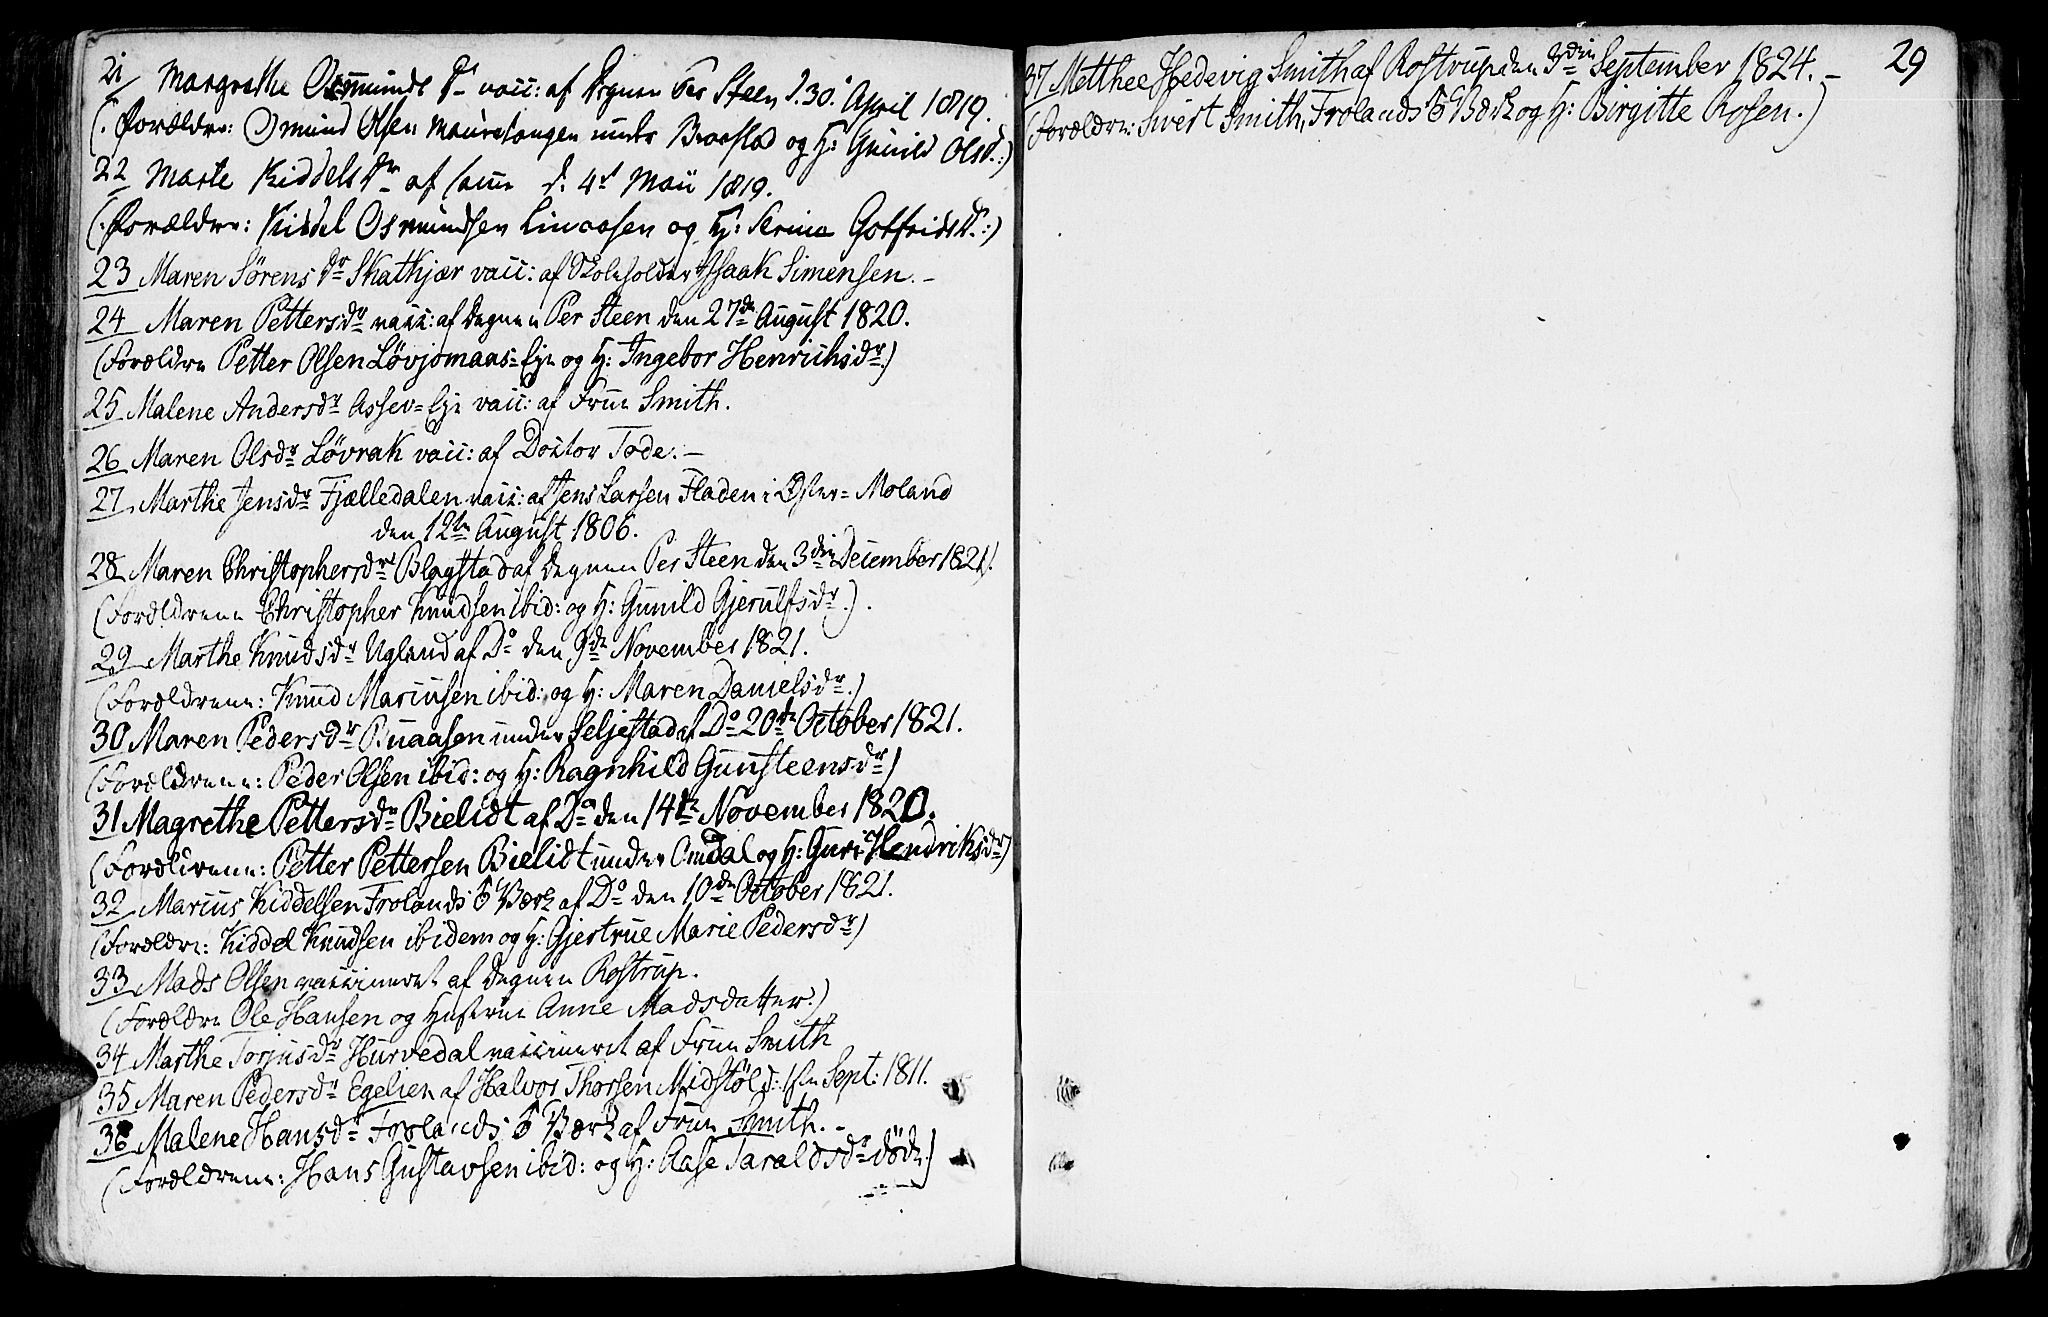 21 Margrethe Osmunds Dr vacc: af Degnen Per Steen d. 30. April 1819.
(: Forældre: Osmund Olsen under Braastad og H: Gunild Olsd. :)
22 Marte Kiddels Dr af samme d. 4de Maii 1819.
(: Forældre: Kiddel Osmundsen Linaasen og H: Serina Gotfrids D. :)
23 Maren Sørens dr Skatkjær vacc: af Skoleholder Issaak Simensen. –
24 Maren Pettersdr vacc: af Degnen Per Steen den 27de August 1820.
(Forældre Petter Olsen Løvjomaas=Eje og H: Ingebor Henrichsdr.)
25 Malene Andersdr Assev=Eje vacc: af Frue Smith.
26 Maren Olsdr Løvrak vacc: af Doctor Tode. –
27 Marthe Jensdr Fjælledalen vacc: af Jens Larsen Fladen i Øster=Moland
den 12te August 1806.
28 Maren Christophersdr Blagstad af Degnen Per Steen den 3die December 1821.
(Forældrene Christopher Knudsen ibid: og H: Gunild Gjerulfsdr.).
29 Marthe Knudsdr Ugland af Do den 9de November 1821.
(Forældrene: Knud Mariusen ibid: og H: Maren Danielsdr.)
30 Maren Pedersdr Buaasen under Seljestad af Do 20de October 1821.
(Forældrene: Peder Olsen ibid: og H: Ragnhild Gunsteensdr)
31 Magrethe Pettersdr Bielidt af Do den 14de November 1820.
(Forældrene: Petter Pettersen Bielidt under Omdal og H: Guri Hendriksdr)
32 Marius Kiddelsen Frolands Værk af Do den 10de October 1821.
(Forældre: Kiddel Knudsen ibidem og H: Gjertrue Marie Pedersdr)
33 Mads Olsen vaccineret af Degnen Rostrup.
(Forældre Ole Hansen og Hustrue Anne Madsdatter.)
34 Marthe Torjusdr Hurvedal vaccineret af Frue Smith
35 Maren Pedersdr Egelien af Halvor Thorsen Midstøl d: 1ste Sept: 1811.
36 Malene Hansdr Frolands Værk af Frue Smith. –
(Forældrene: Hans Gustavsen ibid: og H: Aase Taraldsdr døde.)
29
37 Metthee Hedevig Smith af Rostrup den 3die September 1824. –
(Forældre: Sivert Smith, Frolands Værk og H: Birgitte Rosen.)